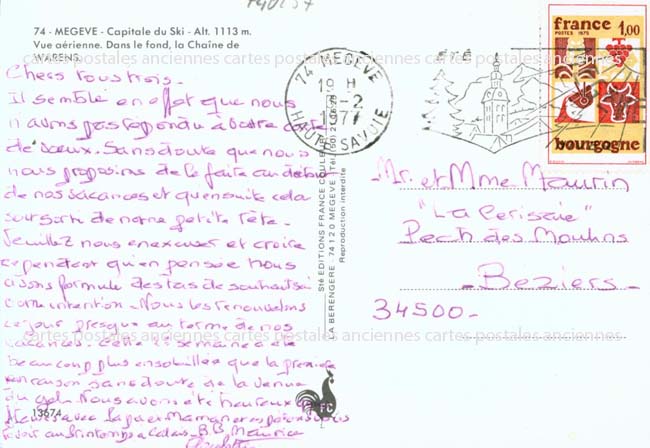 74 - MEGEVE - Capitale du Ski - Alt. 1113 m.
Vue aérienne. Dans le fond, la Chaîne de
WARENS.
Chers tous trois.
Il semble en effet que nous
n'avons pas répondu à votre carte
de voeux. Sans doute que nous
nous proposions de le faire au début
de nos vacances et qu'ensuite cela
soit sorti de notre petite tête.
Veuillez nous en excuser et croire
cependant qu'en pensée nous
avons formulé des tas de souhaits à
cette intention. Nous les renouvelons
ce jour presque au terme de nos
vacances. Cette 2è semaine a été
beaucoup plus ensoleillée que la première
en raison sans doute de la venue
du gel. Nous avons été heureux
avec Papa et Maman
au Printemps B.B. Maurice
13674
Sté EDITIONS FRANCE COULEUR
LA BERENGERE - 74120 MEGEVE
Reproduction interdite
FC
74 MEGEVE
10 H
-2
1977
HAUTE SAVOIE
ÉTÉ
france 1,00
POSTES 1975
bourgogne
Mr. et Mme Maurin
"La Periseie"
Pech des Moulins
Beziers -
34500 -
cartes postales anciennes cartes postales anciennes cartes postales anciennes
cartes postales anciennes cartes postales anciennes cartes postales anciennes